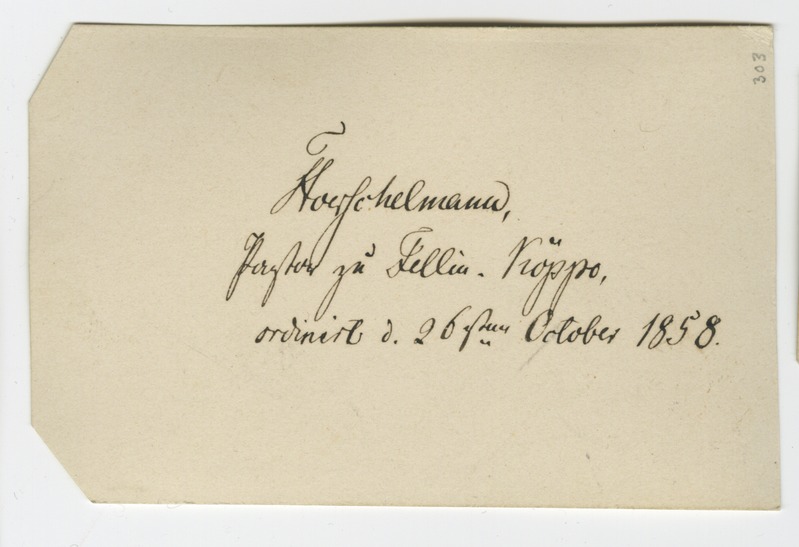 303
F Hoerschelmann,
Pastor zu Fellin-Köppo,
ordinirt d. 26sten October 1858.